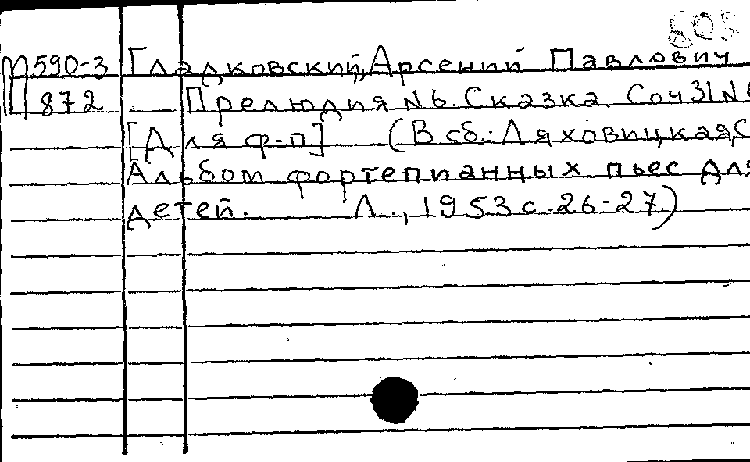 605
М590-3 Гладковский, Арсений Павлович
П872 Прелюдия №6. Сказка. Соч 31 №6
[Для ф-п] (В сб.: Ляховицкая, С
Альбом фортепианных пьес для
детей. Л., 1953 с. 26-27)